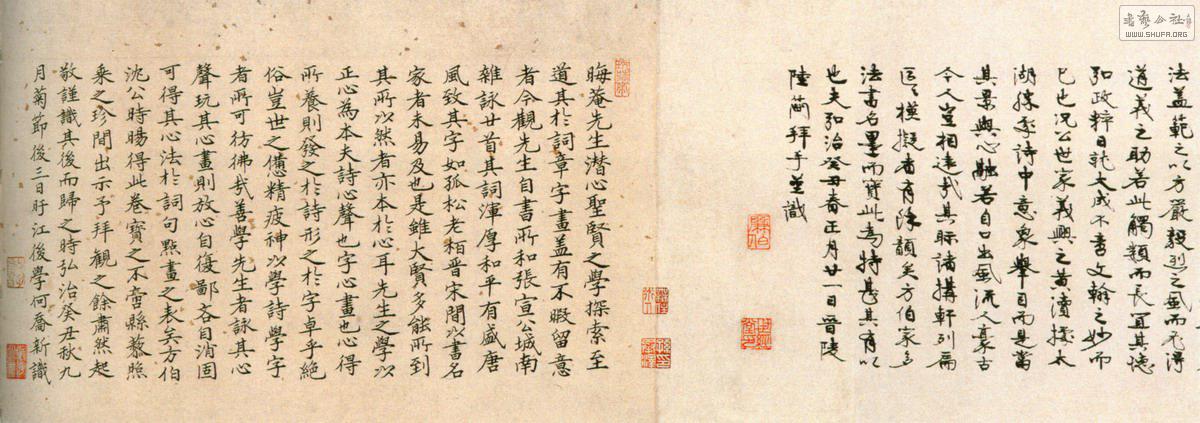 法蓋範之以方嚴毅烈之風而尤得
道義之助若此觸類而長冝其德
弘政粹日就大成不啻文翰之妙而
已也况公世家義興之黄瀆接太
湖勝季詩中意象舉目而是當
其景與心融若自口出風流人豪古
今人豈相遠哉其際諸搆軒列扁
模擬者有除韻矣方伯家多
法書名墨而寳此為特甚其有以
也夫弘治癸丑春正月廿一日晉陵
陸簡拜手並識
晦菴先生潜心聖賢之學探索至
道其於詞章字畫盖有不暇留意
者今觀先生自書所和張宣公城南
雜詠廿首其詞渾厚和平有盛唐
風致其字如孤松老栢晋宋間以書名
家者未易及也是雖大賢多能所到
其所以然者亦本於心耳先生之學以
正心為本夫詩心聲也字心畫也心得
所養則發之於詩形之於字卓乎絶
俗豈世之憊精疲神以學詩學字
者所可彷彿哉善學先生者詠其心
聲玩其心畫則放心自復鄙吝自消固
可得其心法於詞句點畫之表矣方伯
沈公時暘得此卷寳之不啻縣藜照
乗之珍間出示予拜觀之餘肅然起
敬謹識其後而歸之時弘治癸丑秋九
月菊節後三日盱江後學何喬新識
書藝公社
WWW.SHUFA.ORG